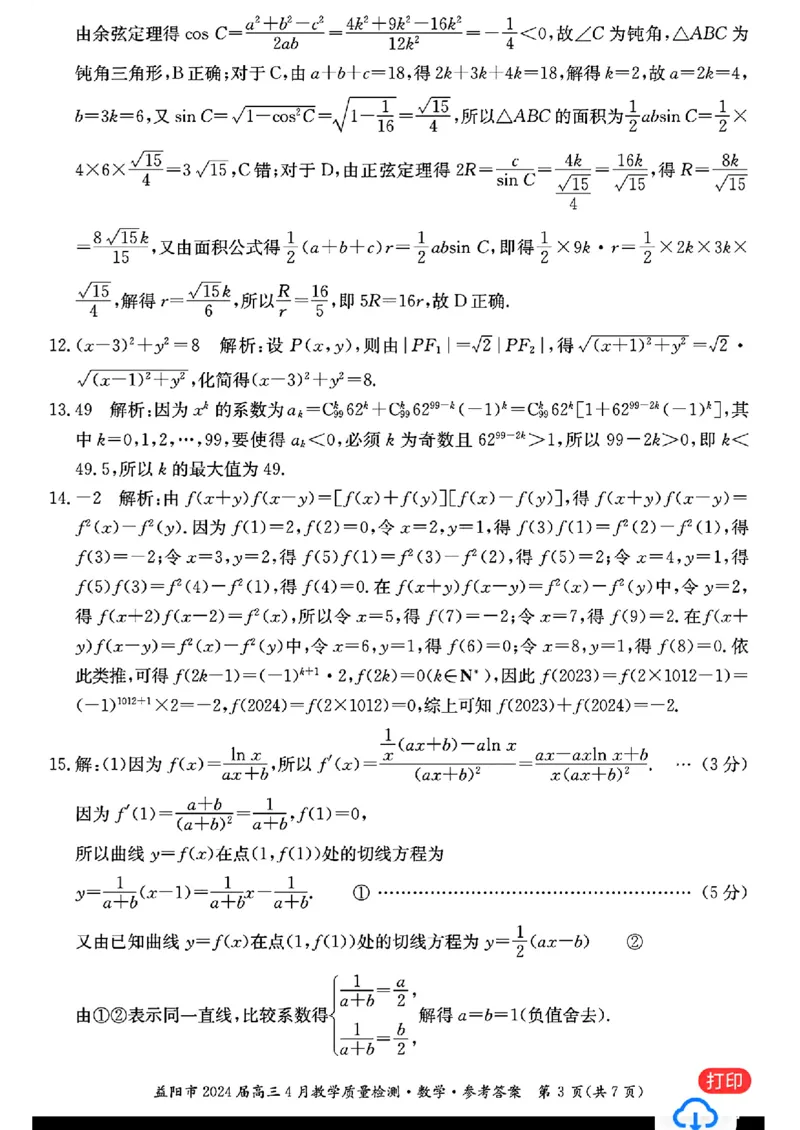 由余弦定理得 cos C=\frac{a²+b²-c²}{2ab}=\frac{4k²+9k²-16k²}{12k²}=-\frac{1}{4}<0,故∠C 为钝角,△ABC 为
钝角三角形,B 正确;对于 C,由 a+b+c=18,得 2k+3k+4k=18,解得 k=2,故 a=2k=4,
b=3k=6,又 sin C=\sqrt{1-cos²C}=\sqrt{1-\frac{1}{16}}=\frac{\sqrt{15}}{4},所以△ABC 的面积为\frac{1}{2}absin C=\frac{1}{2}×
4×6×\frac{\sqrt{15}}{4}=3\sqrt{15},C 错;对于 D,由正弦定理得 2R=\frac{c}{sin C}=\frac{4k}{\frac{\sqrt{15}}{4}}=\frac{16k}{\sqrt{15}},得 R=\frac{8k}{\sqrt{15}}
=\frac{8\sqrt{15}k}{15},又由面积公式得\frac{1}{2}(a+b+c)r=\frac{1}{2}absin C,即得\frac{1}{2}×9k·r=\frac{1}{2}×2k×3k×
\frac{\sqrt{15}}{4},解得 r=\frac{\sqrt{15}k}{6},所以\frac{R}{r}=\frac{16}{5},即 5R=16r,故 D 正确.
12.(x-3)²+y²=8 解析:设 P(x,y),则由|PF₁|=√2|PF₂|,得\sqrt{(x+1)²+y²}=√2·
\sqrt{(x-1)²+y²},化简得(x-3)²+y²=8.
13.49 解析:因为 x^k 的系数为 a_k=C_{99}^k 62^k+C_{99}^k 62^{99-k}(-1)^k=C_{99}^k 62^k[1+62^{99-2k}(-1)^k],其
中 k=0,1,2,…,99,要使得 a_k<0,必须 k 为奇数且 62^{99-2k}>1,所以 99-2k>0,即 k<
49.5,所以 k 的最大值为 49.
14.-2 解析:由 f(x+y)f(x-y)=[f(x)+f(y)][f(x)-f(y)],得 f(x+y)f(x-y)=
f²(x)-f²(y).因为 f(1)=2,f(2)=0,令 x=2,y=1,得 f(3)f(1)=f²(2)-f²(1),得
f(3)=-2;令 x=3,y=2,得 f(5)f(1)=f²(3)-f²(2),得 f(5)=2;令 x=4,y=1,得
f(5)f(3)=f²(4)-f²(1),得 f(4)=0.在 f(x+y)f(x-y)=f²(x)-f²(y)中,令 y=2,
得 f(x+2)f(x-2)=f²(x),所以令 x=5,得 f(7)=-2;令 x=7,得 f(9)=2.在f(x+
y)f(x-y)=f²(x)-f²(y)中,令 x=6,y=1,得 f(6)=0;令 x=8,y=1,得 f(8)=0.依
此类推,可得 f(2k-1)=(-1)^{k+1}·2,f(2k)=0(k∈N*),因此 f(2023)=f(2×1012-1)=
(-1)^{1012+1}×2=-2,f(2024)=f(2×1012)=0,综上可知 f(2023)+f(2024)=-2.
15.解:(1)因为 f(x)=\frac{ln x}{ax+b},所以 f′(x)=\frac{\frac{1}{x}(ax+b)-aln x}{(ax+b)²}=\frac{ax-axln x+b}{x(ax+b)²}. … (3 分)
因为 f′(1)=\frac{a+b}{(a+b)²}=\frac{1}{a+b},f(1)=0,
所以曲线 y=f(x)在点(1,f(1))处的切线方程为
y=\frac{1}{a+b}(x-1)=\frac{1}{a+b}x-\frac{1}{a+b}. ① ………………………………………… (5 分)
又由已知曲线 y=f(x)在点(1,f(1))处的切线方程为 y=\frac{1}{2}(ax-b) ②
由①②表示同一直线,比较系数得{\frac{1}{a+b}=\frac{a}{2}, \frac{1}{a+b}=\frac{b}{2}, 解得 a=b=1(负值舍去).
益阳市 2024 届高三 4 月教学质量检测·数学·参考答案 第 3 页(共 7 页)
打印